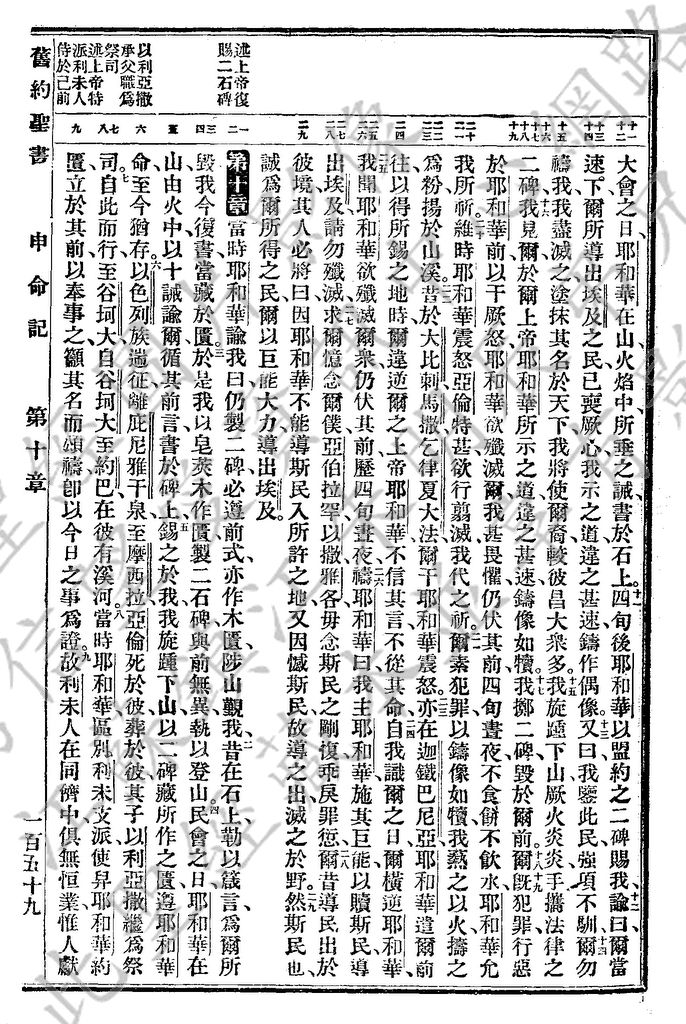 大會之日耶和華在山火焰中所垂之誡書於石上。四旬後耶和華以盟約之二碑賜我、諭曰爾當
速下爾所導出埃及之民已喪厥心我示之道違之甚速鑄作偶像。又曰我鑒此民強項不馴爾勿
禱我我盡滅之塗抹其名於天下我將使爾裔較彼昌大衆多。我旋踵下山厥火炎炎手攜法律之
二碑我見爾於爾上帝耶和華所示之道違之甚速鑄像如犢。我擲二碑毀於爾前。爾旣犯罪行惡
於耶和華前以干厥怒耶和華欲殲滅爾我甚畏懼仍伏其前四旬晝夜不食餅不飲水耶和華允
我所祈。維時耶和華震怒亞倫特甚欲行翦滅我代之祈。爾素犯罪以鑄像如犢我爇之以火擣之
爲粉揚於山溪。昔於大比剌馬撒乞律夏大法爾干耶和華震怒。亦在迦鐵巴尼亞耶和華遣爾前
往以得所錫之地時爾違逆爾之上帝耶和華不信其言不從其命。自我識爾之日爾橫逆耶和華
我聞耶和華欲殲滅爾衆仍伏其前歷四旬晝夜禱耶和華曰我主耶和華施其巨能以贖斯民導
出埃及請勿殲滅。求爾憶念爾僕亞伯拉罕以撒雅各毋念斯民之剛愎乖戾罪愆。爾昔導民出於
彼境其人必將曰因耶和華不能導斯民入所許之地又因憾斯民故導之出滅之於野。然斯民也
誠爲爾所得之民爾以巨能大力導出埃及。
第十章 當時耶和華諭我曰仍製二碑必遵前式亦作木匱陟山覲我昔在石上勒以箴言爲爾所
毀我今復書當藏於匱。於是我以皂莢木作匱製二石碑與前無異執以登山。民會之日耶和華在
山由火中以十誡諭爾循其前言書於碑上錫之於我我旋踵下山以二碑藏所作之匱遵耶和華
命至今猶存。以色列族遄征離庇尼雅干泉至摩西拉亞倫死於彼葬於彼其子以利亞撒繼爲祭
司。自此而行至谷坷大自谷坷大至約巴在彼有溪河。當時耶和華區別利未支派使舁耶和華約
匱立於其前以奉事之籲其名而頌禱卽以今日之事爲證。故利未人在同儕中俱無恒業惟人獻
述上帝復
賜二石碑
以利亞撒
承父職爲
祭司
述上帝特
派利未人
侍於己前
舊約聖書
申命記
第十章
一百五十九